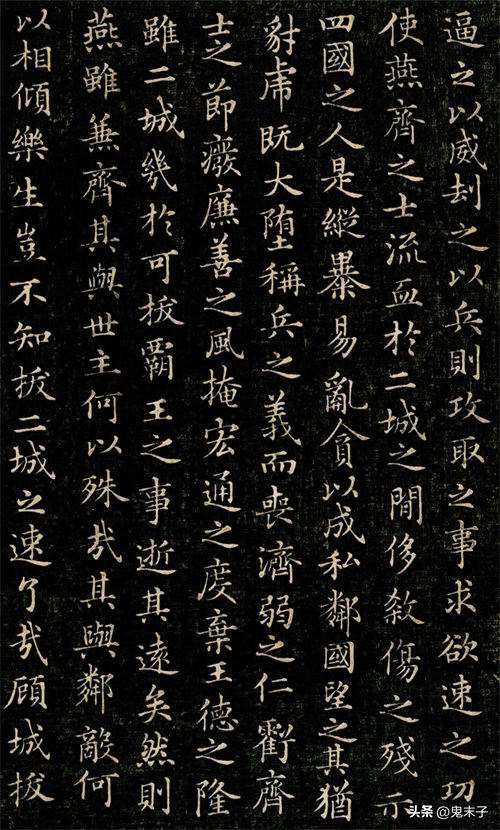 逼之以威刦之以兵則攻取之事求欲速之功
使燕齊之士流血於二城之閒侈敘傷之殘示
四國之人是縱暴易亂貪以成私鄰國望之其猶
豺虎既大墮稱兵之義而喪濟弱之仁虧齊
士之節癈廉善之風掩宏通之度棄王德之隆
雖二城幾於可拔霸王之事逝其遠矣然則
燕雖兼齊其與世主何以殊哉其與鄰敵何
以相傾樂生豈不知拔二城之速了哉顧城拔
头条 @鬼末子